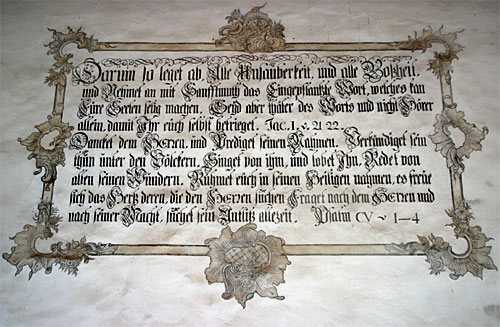 Darum so leget ab Alle Unsauberkeit, und alle Bosheit,
und Nehmet an mit Sanfftmuth das Eingepflantzte Wort, welches kan
Eüre Seelen selig machen. Seyd aber thäter des Worts und nicht Hörer
allein, damit Ihr eüch selbst betrieget. Jac. I. v. 21 22.
Dancket dem HErren, und Prediget seinen Nahmen. Verkündiget sein
thün ünter den Völckern. Singet von ihm, und lobet Ihn. Redet von
allen seinen Wundern. Rühmet eüch in seinen Heiligen nahmen, es freüe
sich das Hertz deren, die den HErren süchen Fraget nach dem HErren und
nach seiner Macht, süchet sein Antlitz allezeit. Psalm CV v 1—4